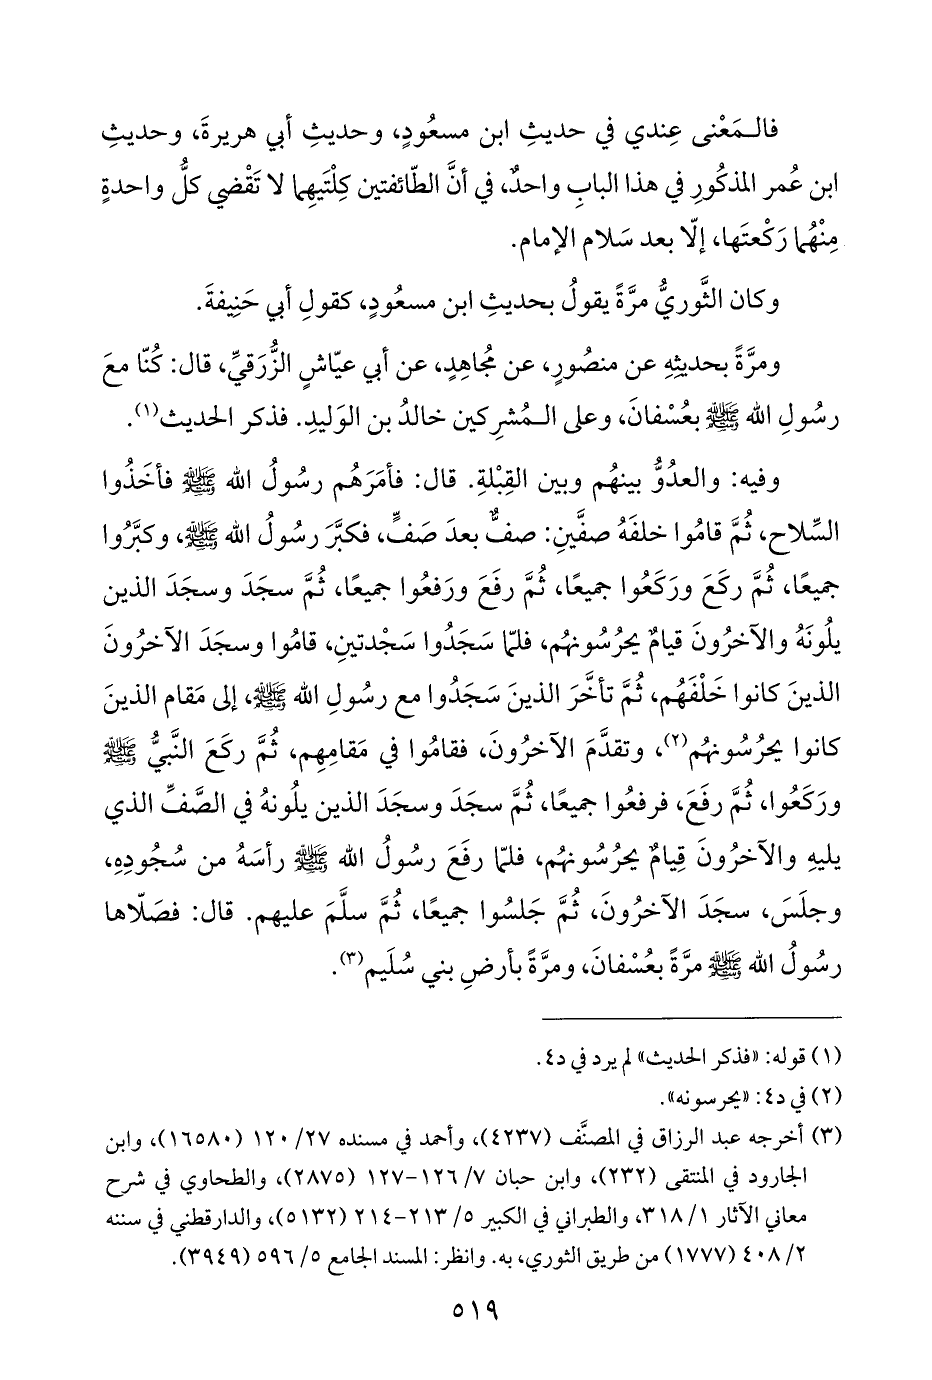 فالـمَعْنى عِندي في حديثِ ابن مسعُودٍ، وحديثِ أبي هريرةَ، وحديثِ
ابن عُمر المذكُورِ في هذا البابِ واحدٌ، في أنَّ الطّائفتين كِلْتَيهِما لا تَقْضي كلُّ واحدةٍ
مِنْهُما رَكْعتَها، إلّا بعد سَلام الإمام.
وكان الثَّوريُّ مرَّةً يقولُ بحديثِ ابن مسعُودٍ، كقولِ أبي حَنِيفةَ.
ومرَّةً بحديثِهِ عن منصُورٍ، عن مُجاهِدٍ، عن أبي عيّاشٍ الزُّرَقيِّ، قال: كُنّا معَ
رسُولِ الله ﷺ بعُسْفانَ، وعلى الـمُشرِكين خالدُ بن الوَليدِ. فذكر الحديث(١).
وفيه: والعدُوُّ بينهُم وبين القِبْلةِ. قال: فأمَرَهُم رسُولُ الله ﷺ فأخَذُوا
السِّلاح، ثُمَّ قامُوا خلفَهُ صفَّينِ: صفٌّ بعدَ صَفٍّ، فكبَّرَ رسُولُ الله ﷺ، وكبَّرُوا
جميعًا، ثُمَّ ركَعَ ورَكَعُوا جميعًا، ثُمَّ رفَعَ ورَفعُوا جميعًا، ثُمَّ سجَدَ وسجَدَ الذين
يلُونَهُ والآخرُونَ قيامٌ يحرُسُونهُم، فلمّا سَجَدُوا سَجْدتينِ، قامُوا وسجَدَ الآخرُونَ
الذينَ كانوا خَلْفَهُم، ثُمَّ تأخَّرَ الذينَ سَجَدُوا مع رسُولِ الله ﷺ، إلى مَقام الذينَ
كانوا يحرُسُونهُم(٢)، وتقدَّمَ الآخرُونَ، فقامُوا في مَقامِهِم، ثُمَّ ركَعَ النَّبيُّ ﷺ
ورَكَعُوا، ثُمَّ رفَعَ، فرفعُوا جميعًا، ثُمَّ سجَدَ وسجَدَ الذين يلُونهُ في الصَّفِّ الذي
يليهِ والآخرُونَ قِيامٌ يحرُسُونهُم، فلمّا رفَعَ رسُولُ الله ﷺ رأسَهُ من سُجُودِهِ،
وجلَسَ، سجَدَ الآخرُونَ، ثُمَّ جَلسُوا جميعًا، ثُمَّ سلَّمَ عليهم. قال: فصَلّاها
رسُولُ الله ﷺ مرَّةً بعُسْفانَ، ومرَّةً بأرضِ بني سُلَيم(٣).
(١) قوله: «فذكر الحديث» لم يرد في د٤.
(٢) في د٤: «يحرسونه».
(٣) أخرجه عبد الرزاق في المصنَّف (٤٢٣٧)، وأحمد في مسنده ٢٧/ ١٢٠ (١٦٥٨٠)، وابن
الجارود في المنتقى (٢٣٢)، وابن حبان ٧/ ١٢٦-١٢٧ (٢٨٧٥)، والطحاوي في شرح
معاني الآثار ١/ ٣١٨، والطبراني في الكبير ٥/ ٢١٣-٢١٤ (٥١٣٢)، والدارقطني في سننه
٢/ ٤٠٨ (١٧٧٧) من طريق الثوري، به. وانظر: المسند الجامع ٥/ ٥٩٦ (٣٩٤٩).
٥١٩